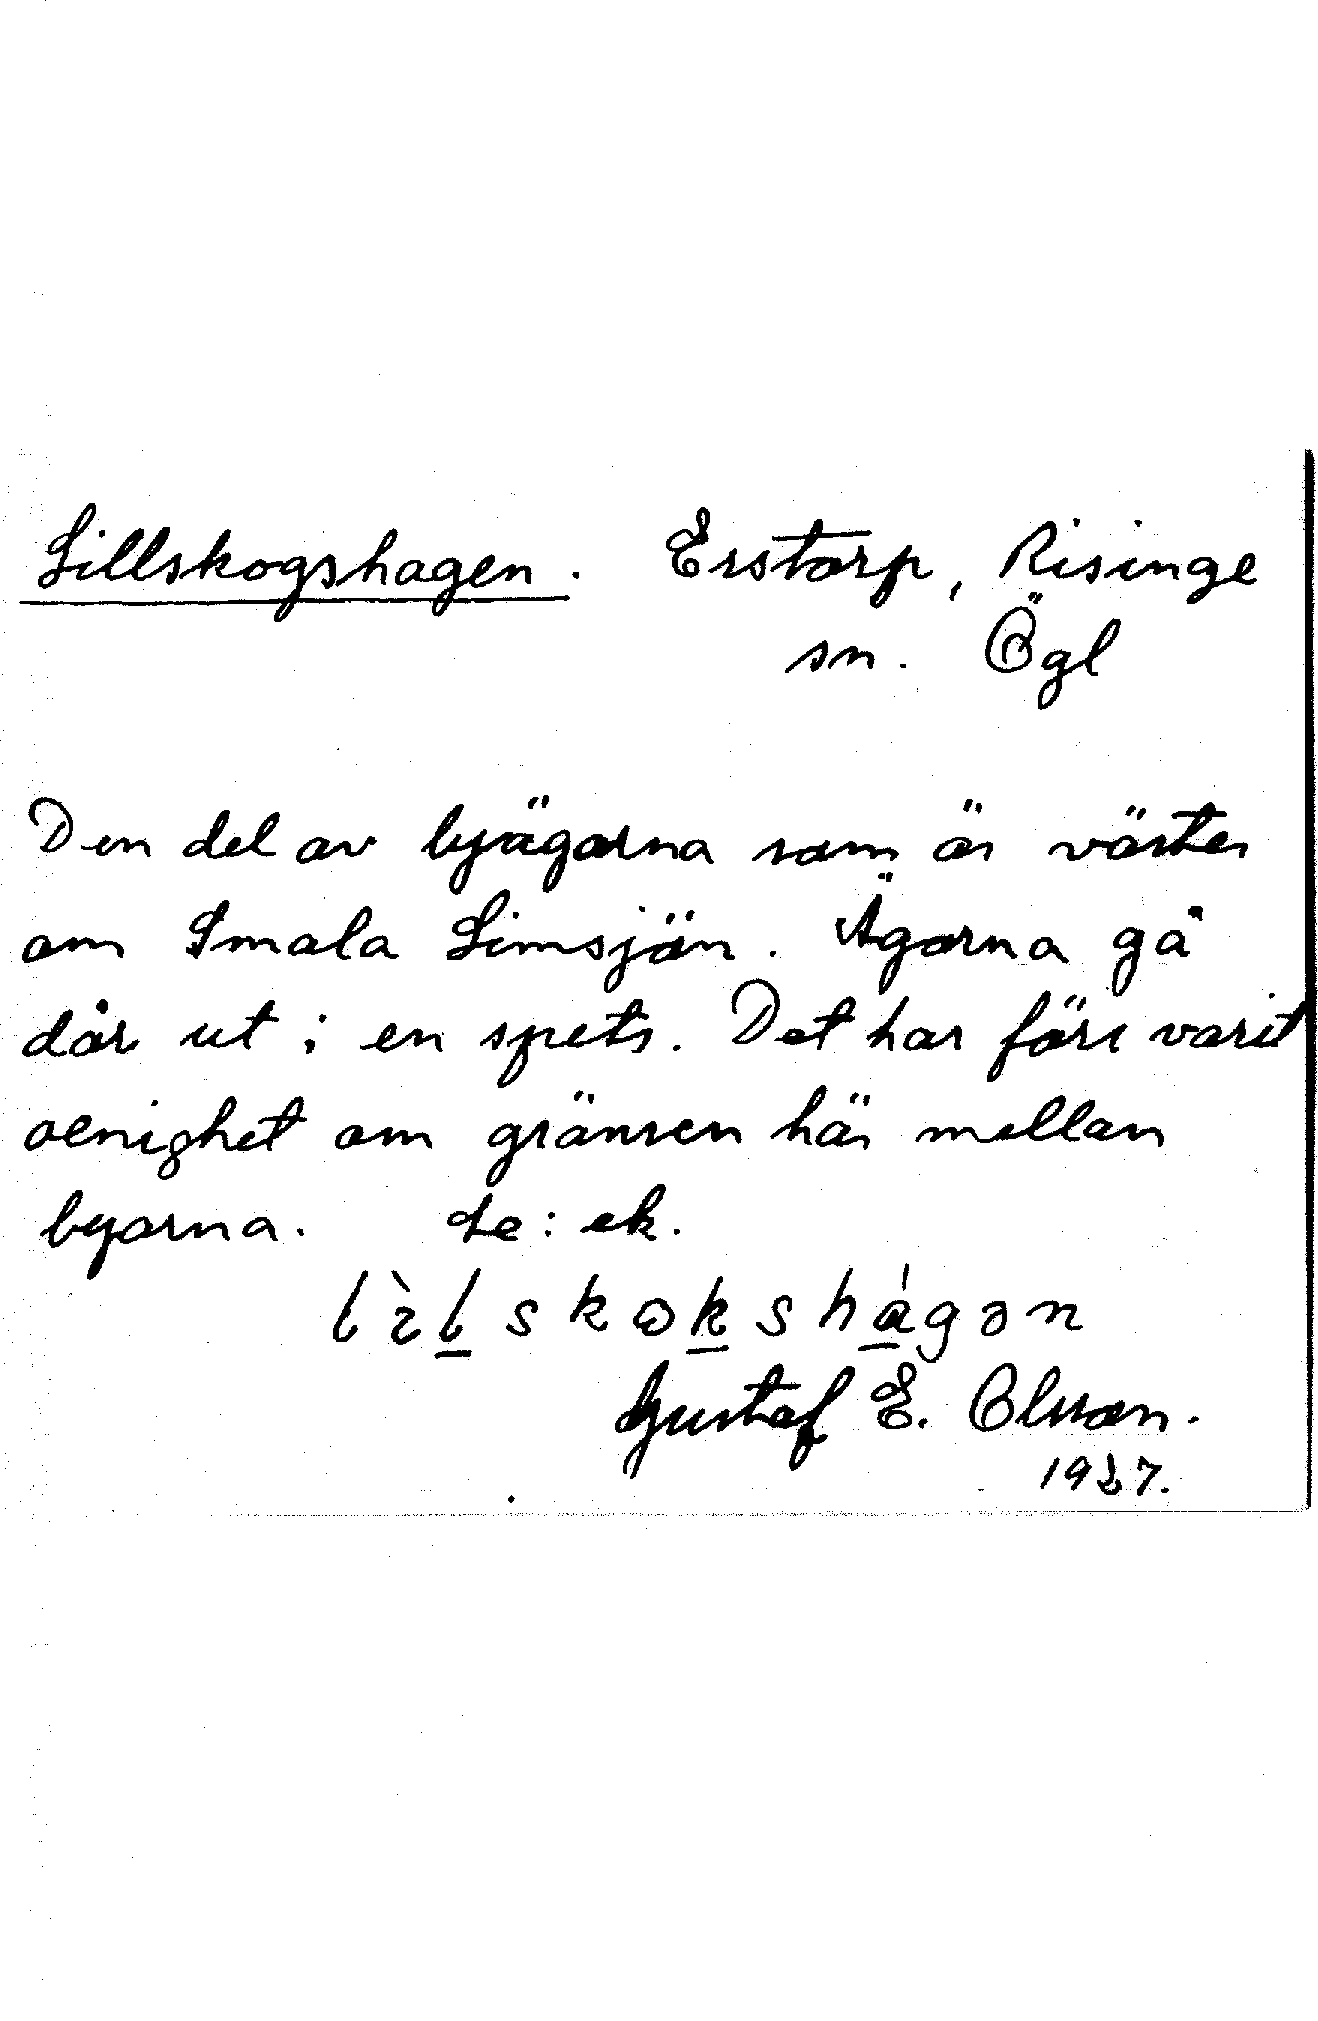 Lillskogshagen. Erstorp, Risinge
sn. Ögl
Den del av byägorna som är väster
om Smala Limsjön. Ägorna gå
där ut i en spets. Det har förr varit
oenighet om gränsen här mellan
byarna. te: ek.
lìlskokshágən
Gustaf E. Olsson.
1937.